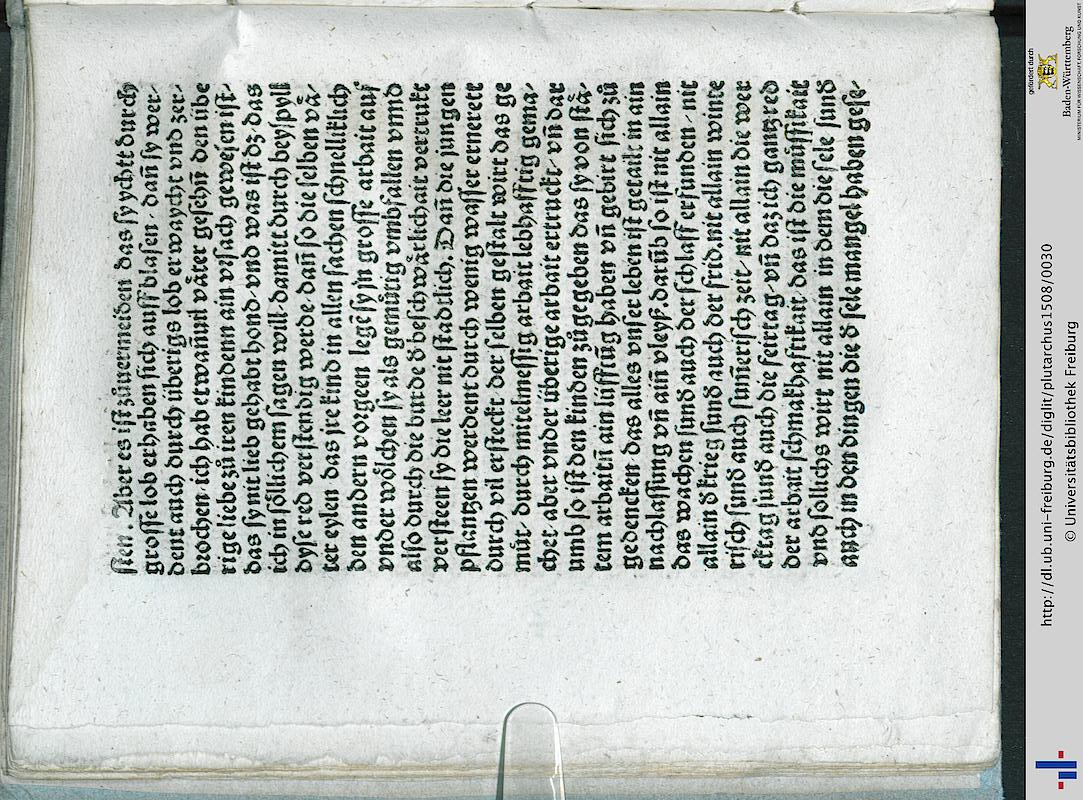 sten. Aber es ist zůuermeiden das sy nyt durch
grosse lob erhaben sich auff blasen. dañ sy wer-
dent auch durch überigs lob erwaycht vnd zer-
brochen. ich hab etwañil våter gesehñ den ibe
rige liebe zů iren kindenn ain vrsach gewesen ist.
das sy nit lieb gehabt hond. vnd was ist dz das
ich in söllichem sagen will damitt durch beyspyll
dyse red verstendig werde. dañ so die selben vå-
ter eylen das jre kind in allen sachen schnelliklich
den andern vorgen legē sy jn grosse arbait auf
vnder wölchen sy als gemüttig vmbfallen vnnd
also durch die bürde d beschwårlichait vertruckt
versteen sy die leer nit stadtlich. Dañ die jungen
pflantzen werdent durch wenig wasser ernerett
durch vil ersteckt der selben gestalt wirt das ge
müt. durch mitelmessig arbait lebhafftig gema-
chet. aber vnder überige arbait ertruckt. vñ dar
umb so ist den kinden zůgegeben das sy von stå-
tem arbaitñ ain lüfftung haben vñ gebirt sich zů
gedencken das alles vnser leben ist getailt in ain
nachlassung vñ aim vleyß. darüb so ist nit allain
das wachen sund auch der schlaff erfunden. nit
allain d krieg sund auch der frid. nit allain winte
risch sund auch sum̃erisch zeit. nit allain die wer
cktag sund auch die feirtag. vñ daz ich gantz red
der arbait schmakhaftikait das ist die müssikait
vnd sollichs wirt nit allain in dem die sele sund
auch in den dingen die d sele mangel haben gese-
gefördert durch
Baden-Württemberg
MINISTERIUM FÜR WISSENSCHAFT, FORSCHUNG UND KUNST
http://dl.ub.uni-freiburg.de/diglit/plutarchus1508/0030
© Universitätsbibliothek Freiburg